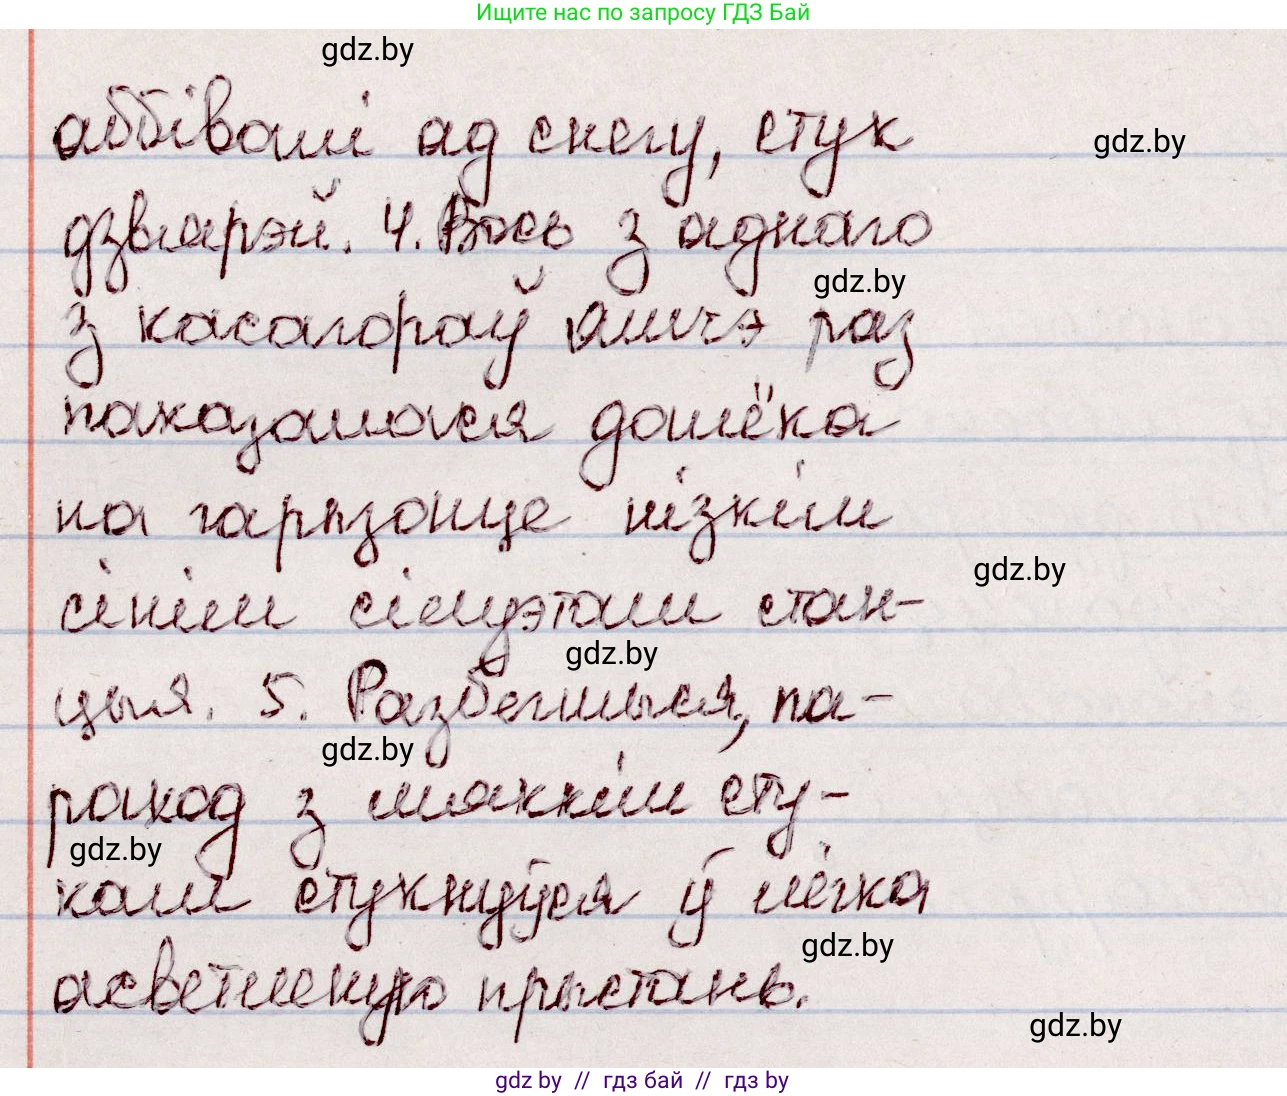 Ищите нас по запросу ГДЗ Бай
gdz.by
аббівалі ад снегу, стук
gdz.by
дзвярэй. 4. Вось з аднаго
gdz.by
з касагораў яшчэ раз
паказалася далёка
на гарызонце нізкім
gdz.by
сінім сілуэтам стан-
gdz.by
цыя. 5. Разбегшыся, па-
gdz.by
раход з мяккім сту-
gdz.by
кам стукнуўся ў лёгка
gdz.by
асветленую прыстань.
gdz.by
gdz by // гдз бай // гдз by